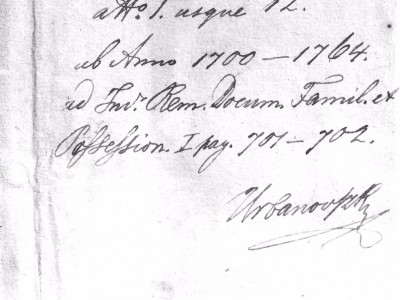 a No. 1. usque 12.
ab Anno 1700 – 1764.
ad Ind. Rem. Docum. Famil. et
Possession. I pag. 701 – 702.
Urbanovszky